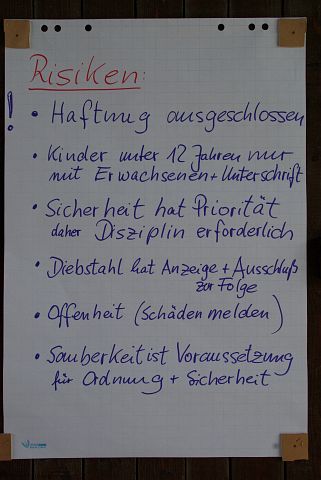 Risiken:
! • Haftung ausgeschlossen
• Kinder unter 12 Jahren nur
mit Erwachsenen + Unterschrift
• Sicherheit hat Priorität
daher Disziplin erforderlich
• Diebstahl hat Anzeige + Ausschluß
zur Folge
• Offenheit (Schäden melden)
• Sauberkeit ist Voraussetzung
für Ordnung + Sicherheit